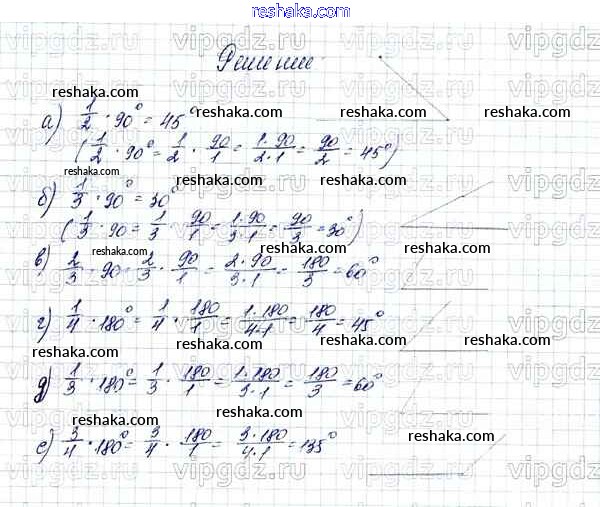 reshaka.com
Решение
а) 1/2 · 90° = 45°
(1/2 · 90° = 1/2 · 90/1 = 1·90/2·1 = 90/2 = 45°)
б) 1/3 · 90° = 30°
(1/3 · 90 = 1/3 · 90/1 = 1·90/3·1 = 90/3 = 30°)
в) 2/3 · 90 = 2/3 · 90/1 = 2·90/3·1 = 180/3 = 60°
г) 1/4 · 180° = 1/4 · 180/1 = 1·180/4·1 = 180/4 = 45°
д) 1/3 · 180° = 1/3 · 180/1 = 1·180/3·1 = 180/3 = 60°
е) 3/4 · 180° = 3/4 · 180/1 = 3·180/4·1 = 135°
vipgdz.ru